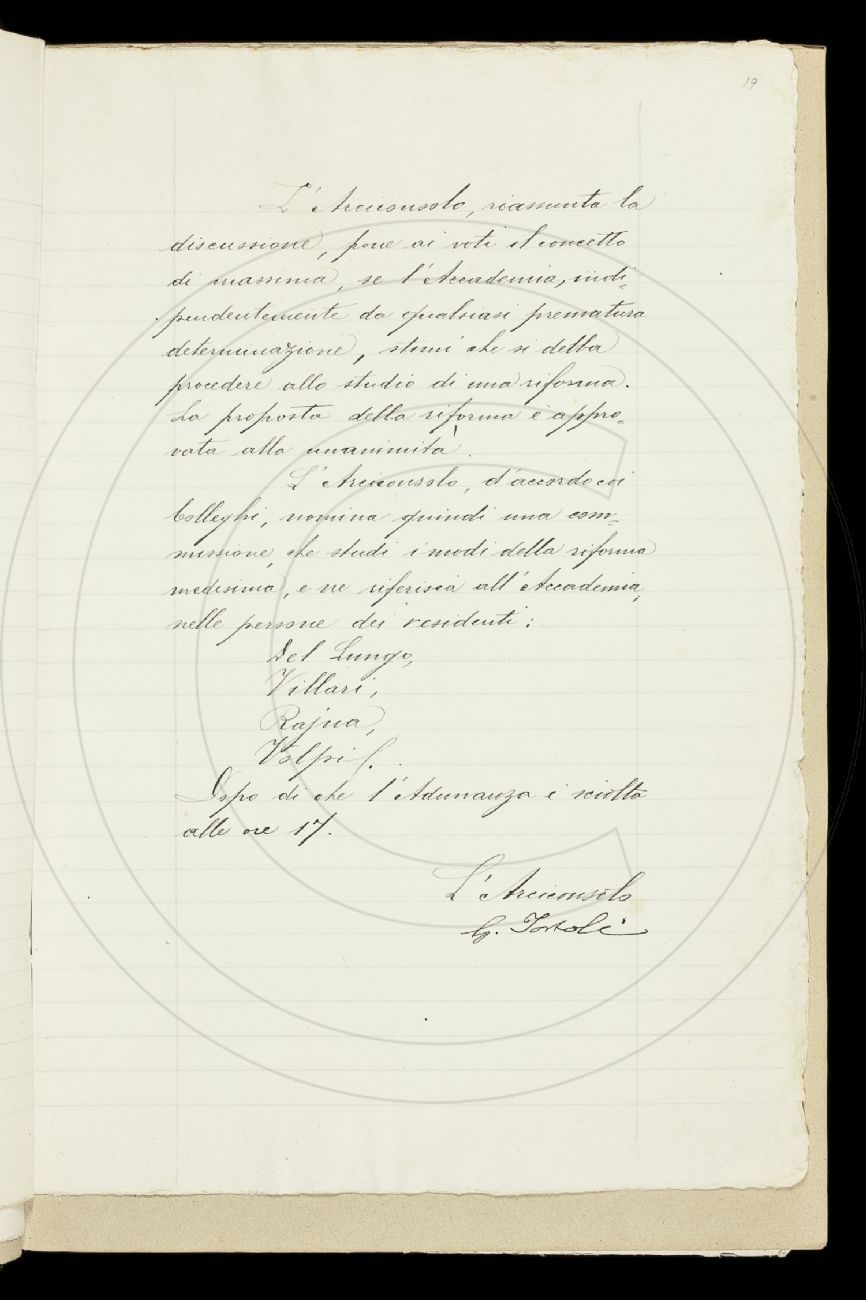 19
L'Arciconsolo, riassunta la
discussione, pone ai voti il concetto
di massima, se l'Accademia, indi-
pendentemente da qualsiasi prematura
determinazione, stimi che si debba
procedere allo studio di una riforma.
La proposta della riforma è appro-
vata alla unanimità.
L'Arciconsolo, d'accordo coi
Colleghi, nomina quindi una com-
missione, che studi i modi della riforma
medesima, e ne riferisca all'Accademia,
nelle persone dei residenti:
Del Lungo,
Villari,
Rajna,
Volpi G.
Dopo di che l'Adunanza è sciolta
alle ore 17.
L'Arciconsolo
G. Tortoli